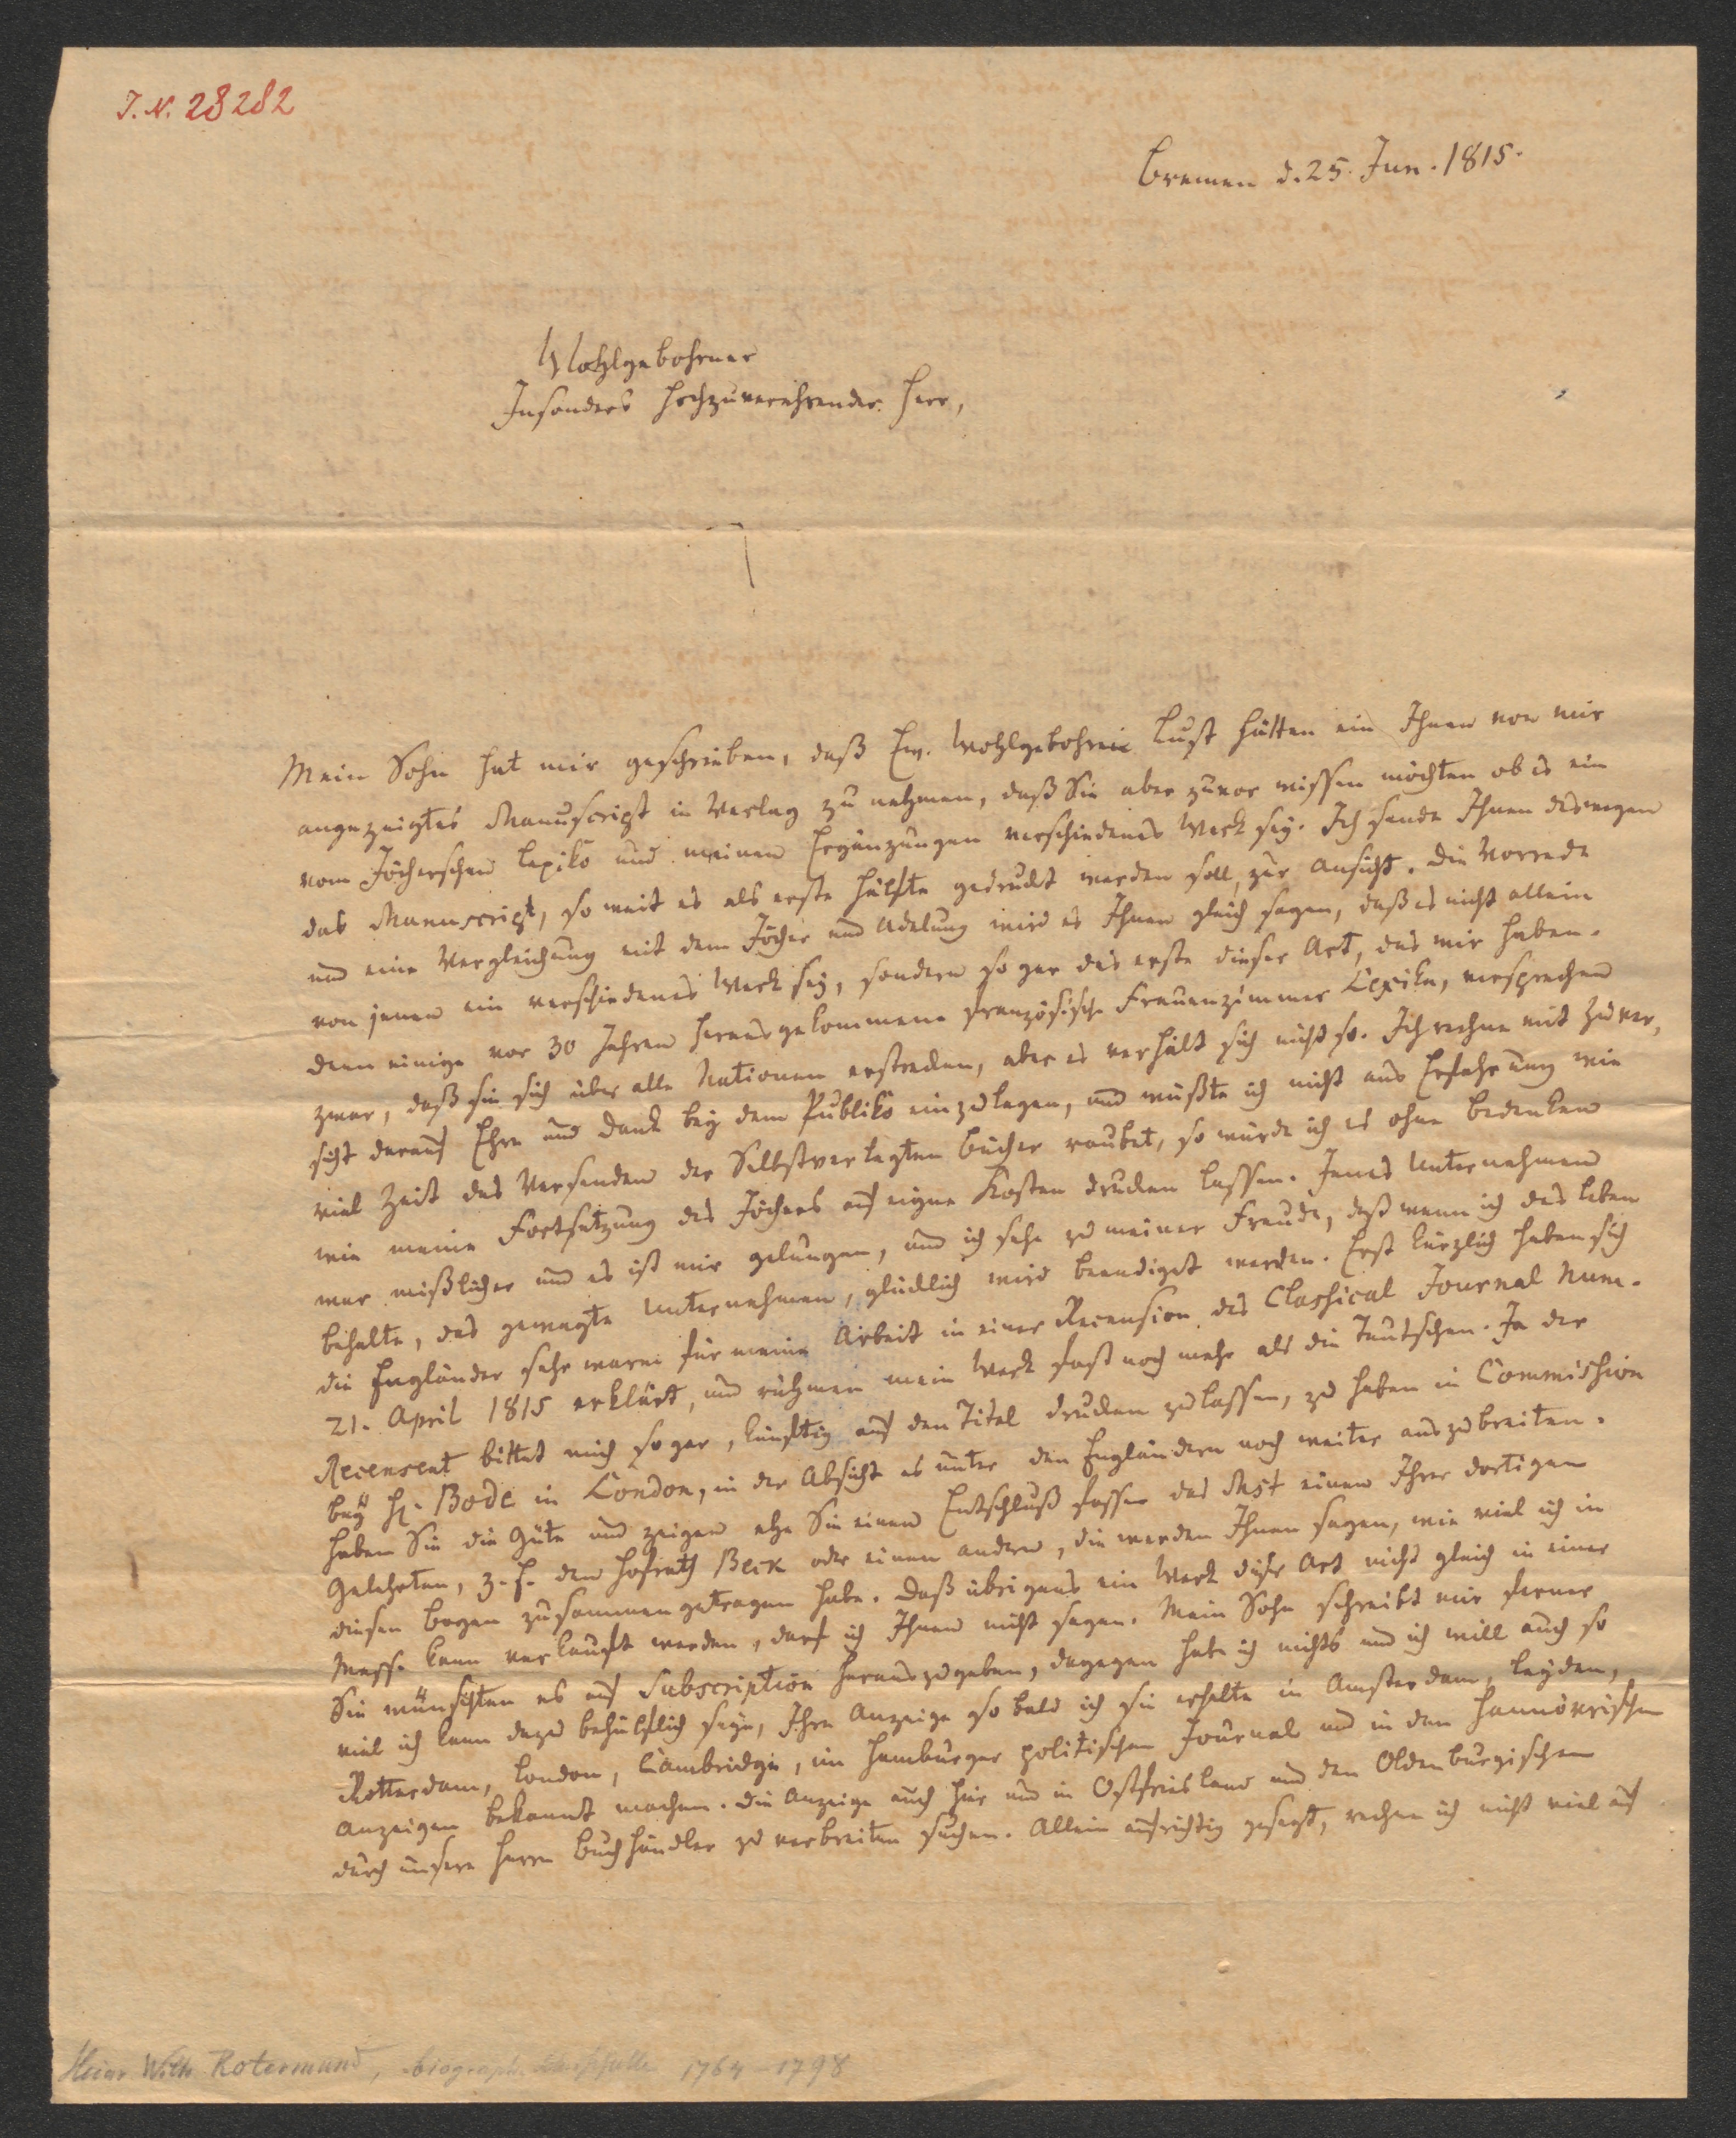 J. N. 28282
Bremen d. 25. Jun. 1815.
Wohlgebohrner
Insonders Hochzuverehrender Herr,
Mein Sohn hat mir geschrieben, daß Ew. Wohlgebohren Lust hätten ein Ihnen von mir
angezeigtes Manuscript in Verlag zu nehmen, daß Sie aber zuvor wissen möchten ob es ein
vom Jöcherschen Lexiko und meinen Ergänzungen verschiedenes Werk sey. Ich sende Ihnen deswegen
das Manuscript, so weit es als erste Hälfte gedruckt werden soll, zur Ansicht. Die Vorrede
und eine Vergleichung mit dem Jöcher und Adelung wird es Ihnen gleich sagen, daß es nicht allein
von jenen ein verschiedenes Werk sey, sondern so gar das erste dieser Art, das wir haben.
Denn einige vor 30 Jahren herausgekommene französische Frauenzimmer Lexika, versprechen
zwar, daß sie sich über alle Nationen erstrecken, aber es verhält sich nicht so. Ich rechne mit Zuver,
sicht darauf Ehre und Dank bey dem Publiko einzulegen, und wüßte ich nicht aus Erfahrung wie
viel Zeit das Versenden der Selbstverlegten Bücher raubet, so würde ich es ohne Bedenken
wie meine Fortsetzung des Jöchers auf eigne Kosten drucken lassen. Jenes Unternehmen
war mißlicher und es ist mir gelungen, und ich sehe zu meiner Freude, daß wenn ich das Leben
behalte, das gewagte Unternehmen, glücklich wird beendiget werden. Erst kürzlich haben sich
die Engländer sehr warm für meine Arbeit in einer Recension des Classical Journal Num.
21. April 1815 erklärt, und rühmen mein Werk fast noch mehr als die Teutschen. Ja der
Recensent bittet mich so gar, künftig auf den Titel drucken zu lassen, zu haben in Commission
bey H. Bode in London, in der Absicht es unter den Engländern noch weiter auszubreiten.
Haben Sie die Güte und zeigen ehe Sie einen Entschluß fassen das Mst einem Ihrer dortigen
Gelehrten, z. E. dem Hofrath Beck oder einem andern, die werden Ihnen sagen, wie viel ich in
diesen Bogen zusammengetragen habe. Daß übrigens ein Werk dieser Art nicht gleich in einer
Messe kann verkauft werden, darf ich Ihnen nicht sagen. Mein Sohn schreibt mir ferner
Sie wünschten es auf Subscription herauszugeben, dagegen habe ich nichts und ich will auch so
viel ich kann dazu behülflich seyn, Ihre Anzeige so bald ich sie erhalte in Amsterdam, Leyden,
Rotterdam, London, Cambridge, im Hamburger politischen Journal und in den Hannövrischen
Anzeigen bekannt machen. Die Anzeige auch hier und in Ostfriesland und den Oldenburgischen
durch unsere Herrn Buchhändler zu verbreiten suchen. Allein aufrichtig gesagt, rechne ich nicht viel auf
Heinr. Wilh. Rotermund, biograph. 1764–1798